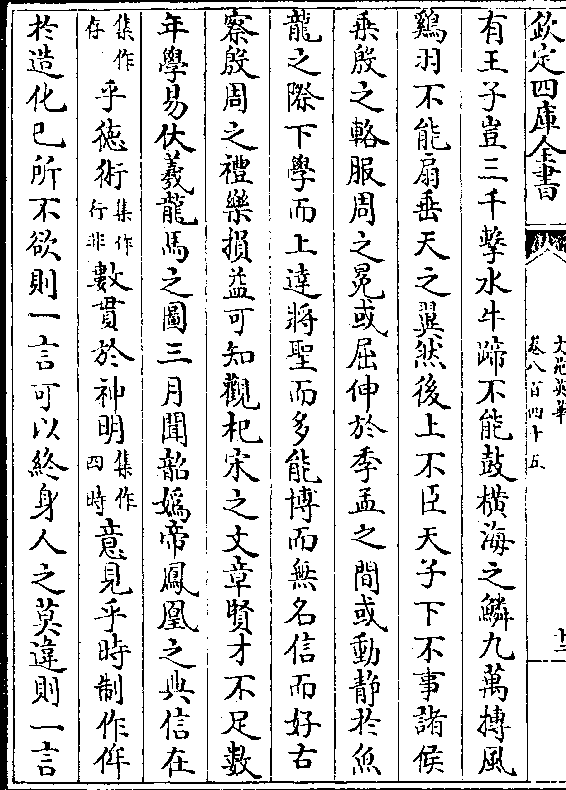 欽定四庫全書
文苑英華
卷八百四十五
十三
有王子豈三千擊水牛蹄不能鼓橫海之鱗九萬摶風
鷄羽不能扇垂天之翼然後上不臣天子下不事諸侯
乗殷之輅服周之冕或屈伸於季孟之間或動靜於魚
龍之際下學而上達將聖而多能博而無名信而好古
察殷周之禮樂損益可知觀杞宋之文章賢才不足數
年學易伏羲龍馬之圖三月聞韶媯帝鳳凰之典信在
集作存乎德術集作行非數貫於神明集作四時意見乎時制作侔
於造化已所不欲則一言可以終身人之莫違則一言